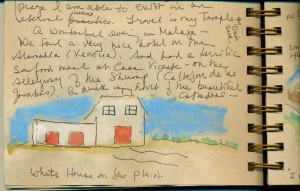 place I am able to exist in an
eternal
Travel is my Temple
A wonderful evening in Malaga -
We found a very nice hotel on the
Alameda (Venecia) And had a terrific
Seafood meal at Casa Vicente - on the
alleyway of the Shrimp (Callejon de las
Gambas), in front of the beautiful
Cathedral -
White House on the plain.